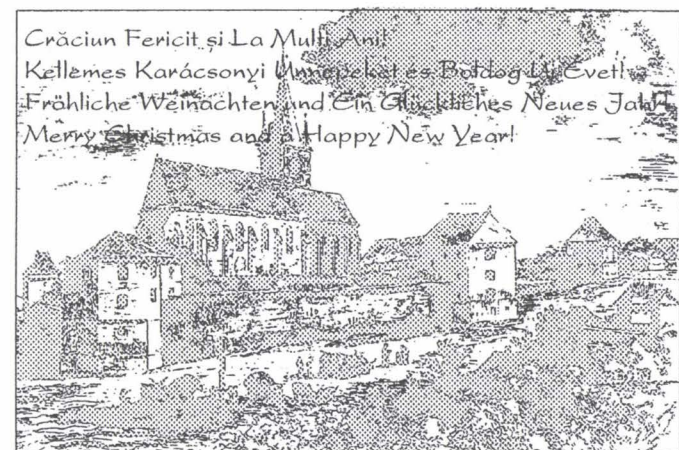 Crăciun Fericit și La Mulți Ani!
Kellemes Karácsonyi Ünnepeket és Boldog Uj Évet!
Fröhliche Weinachten und Ein Glückliches Neues Jahr!
Merry Christmas and a Happy New Year!